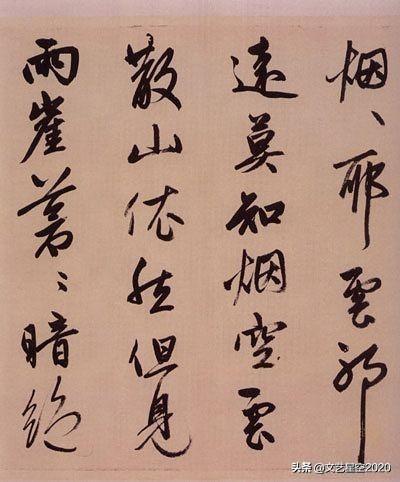 烟、耶雲耶
遠莫知烟空雲
散山依然但見
兩崖蒼〻暗絕
头条 @文艺星空2020